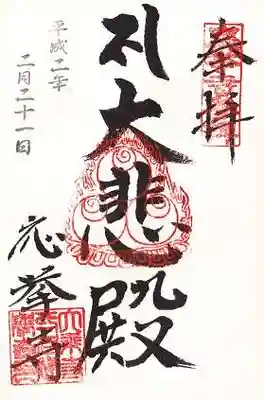 奉拝
札大悲殿
平成二年
二月二十一日
応挙寺